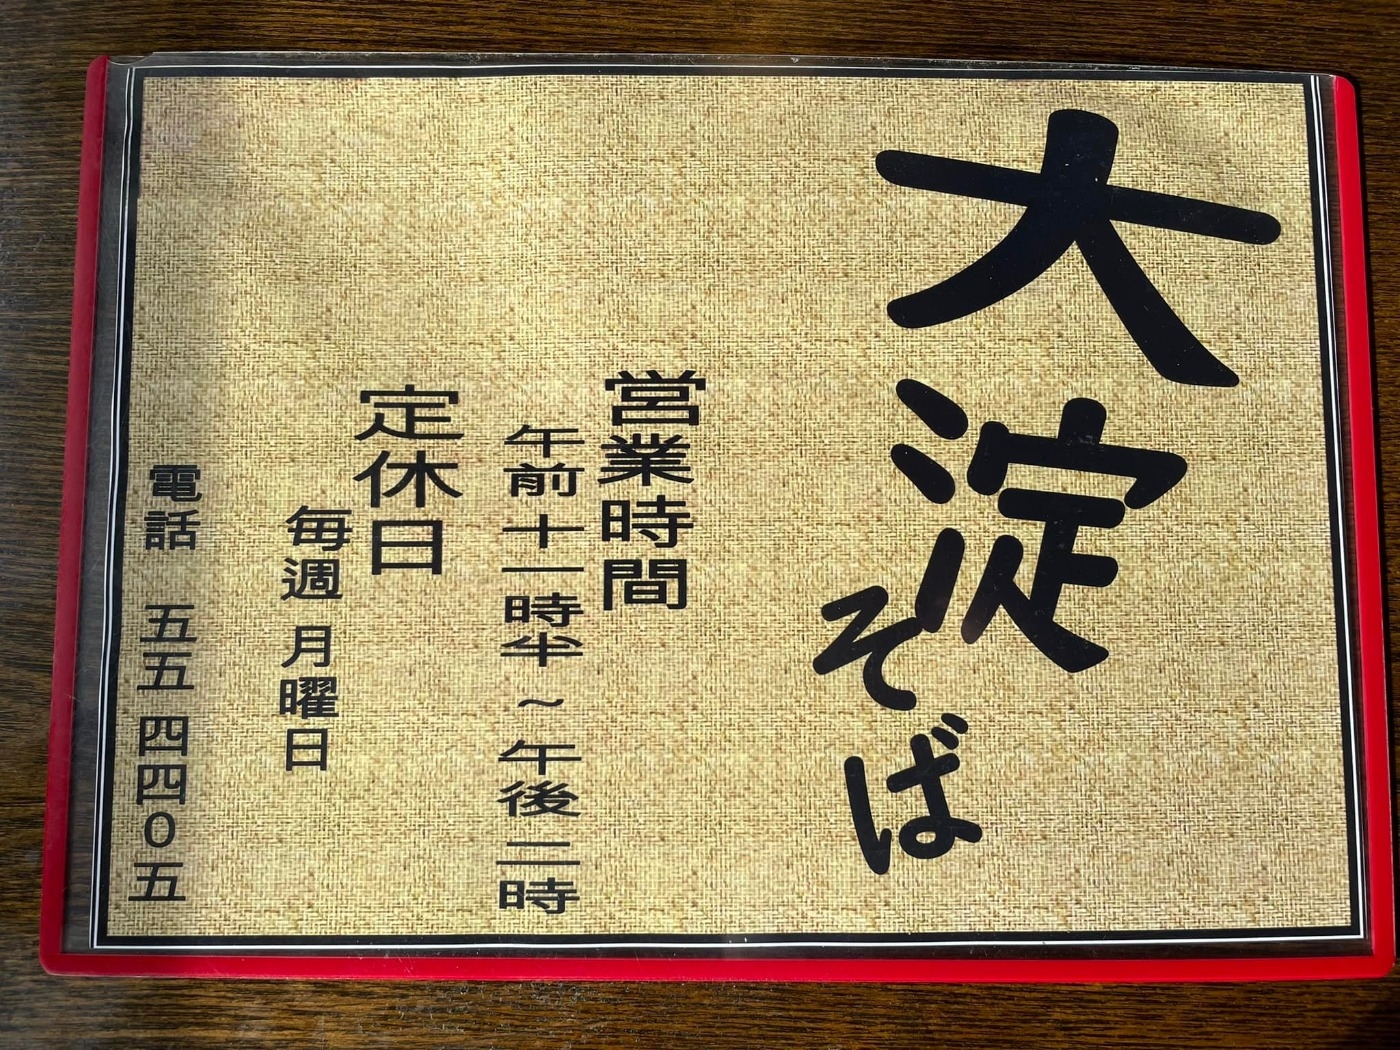 大淀
そば
営業時間
午前十一時半～午後二時
定休日
毎週 月曜日
電話 五五 四四０五